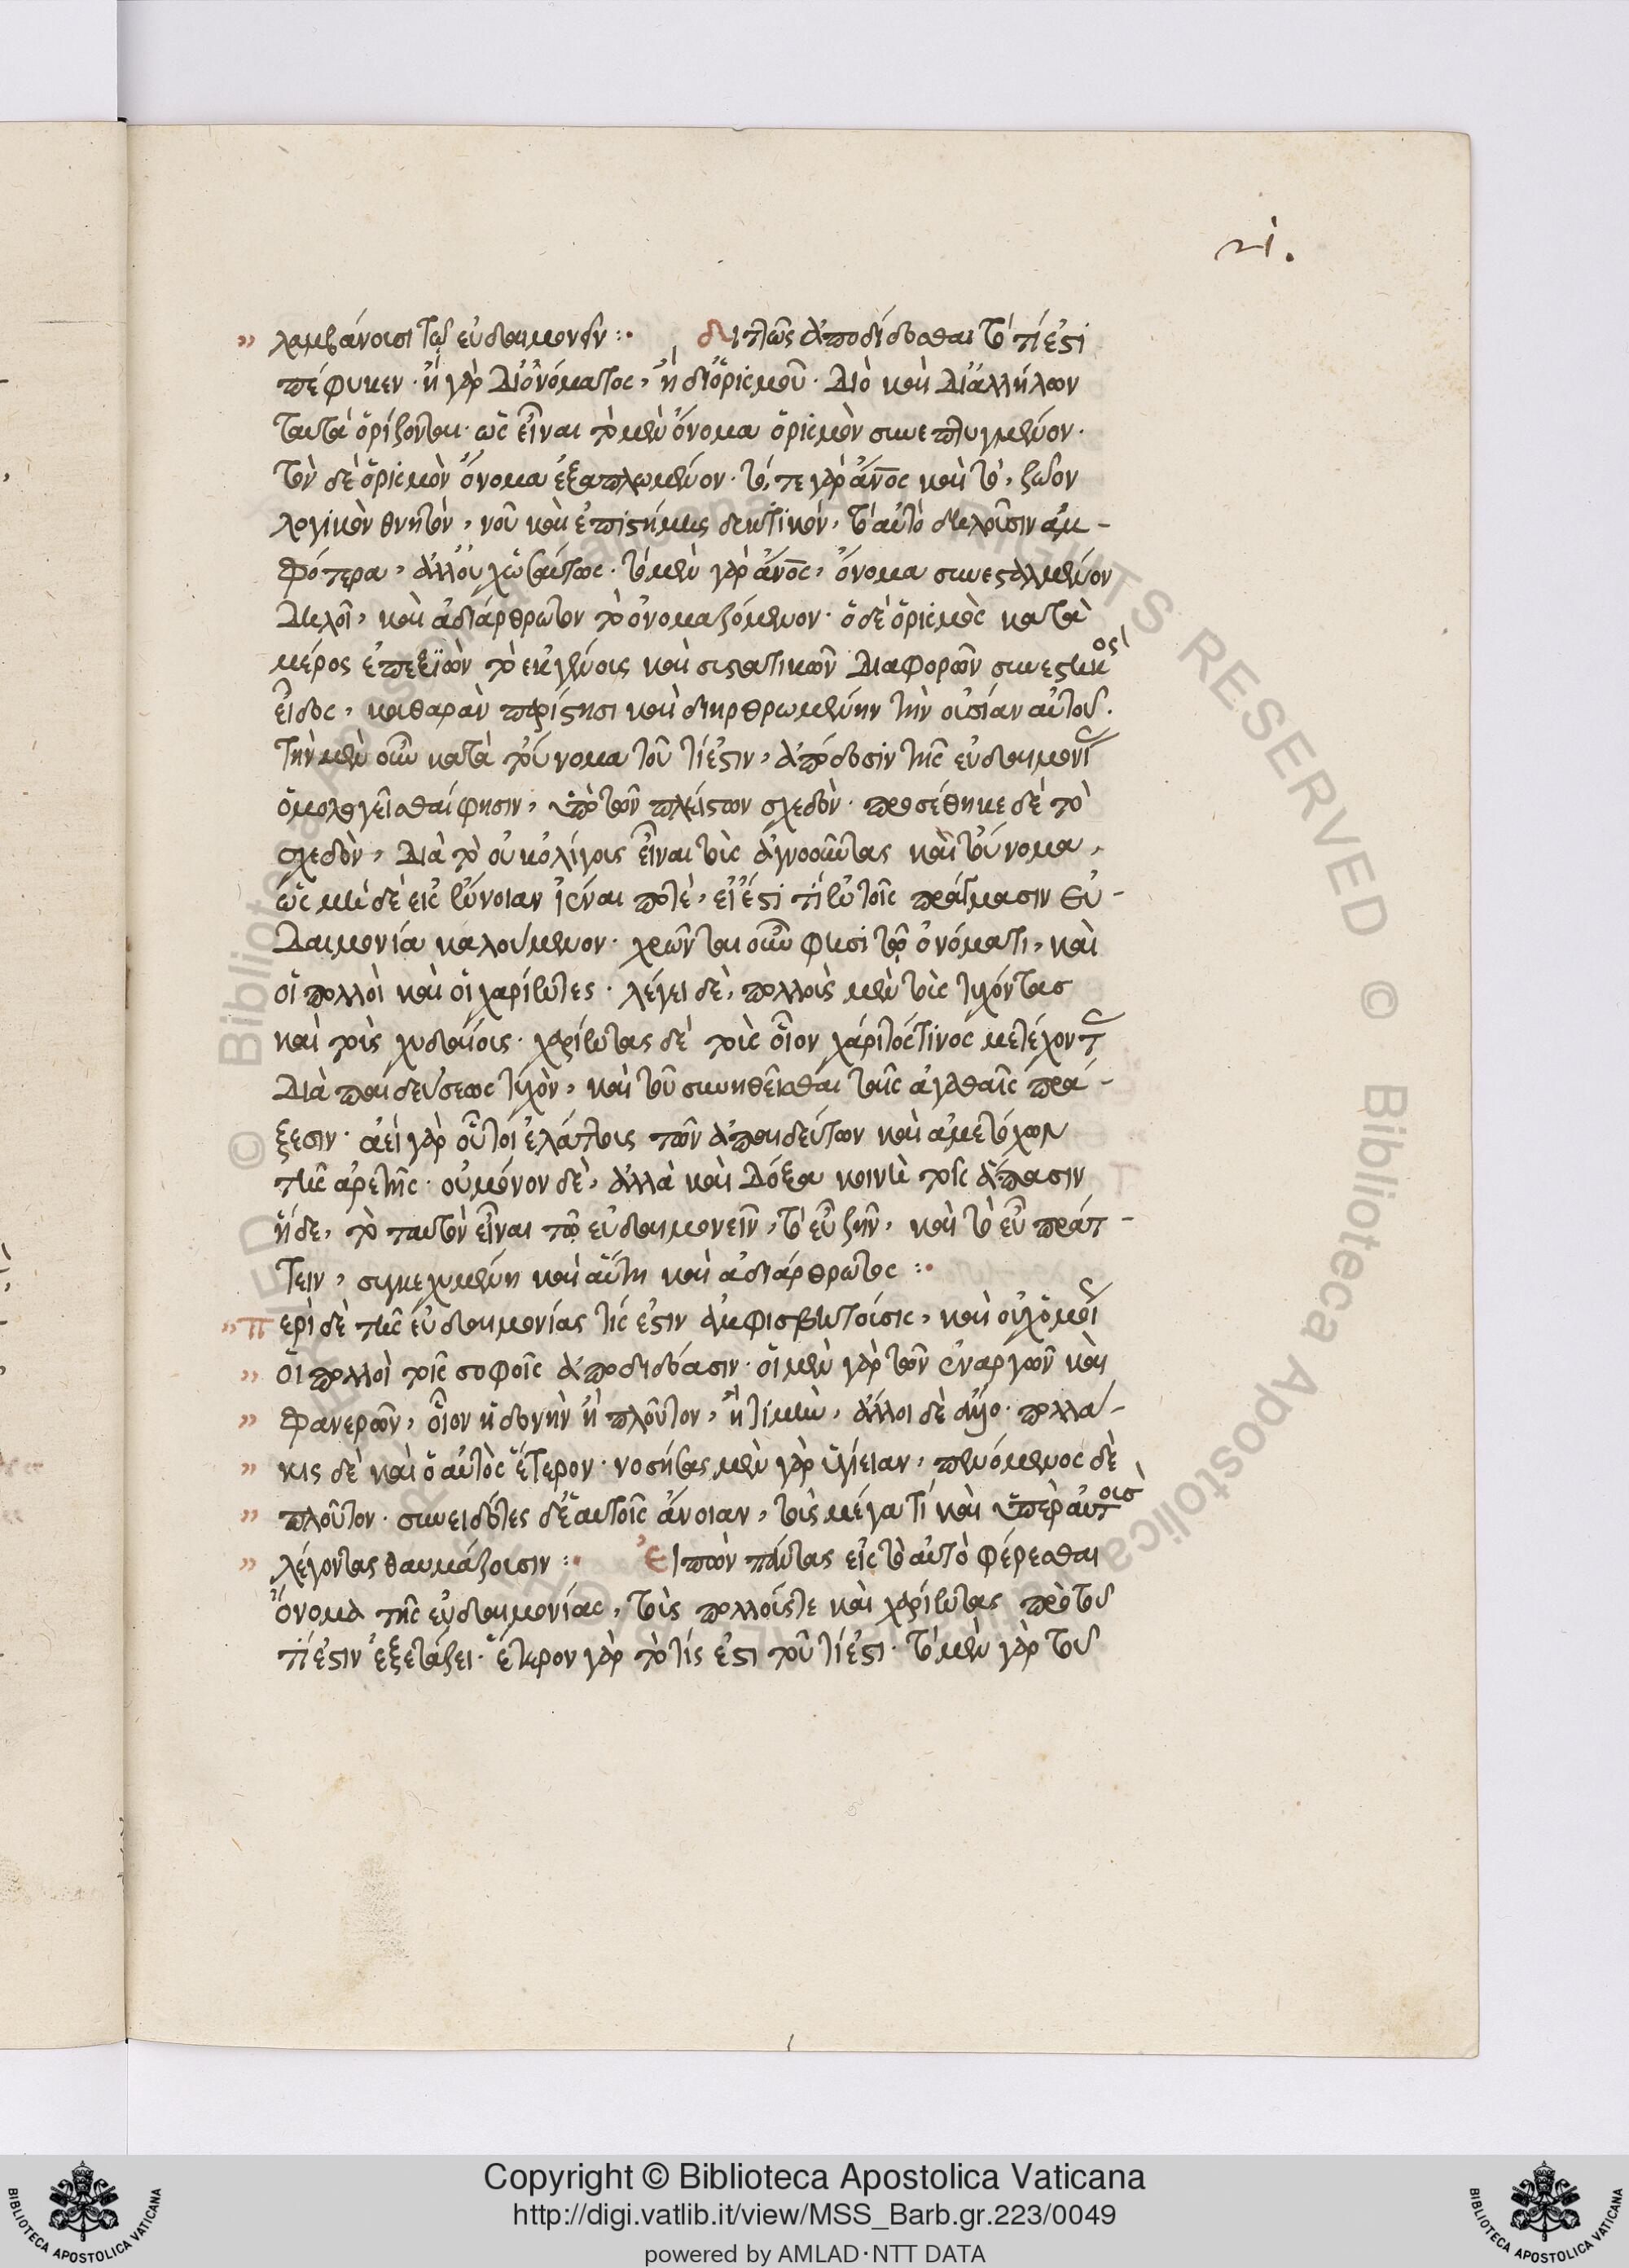 21.
λαμβάνουσι τῷ εὐδαιμονεῖν :· διπλῶς ἀποδίδοσθαι τὸ τί ἐστι
πέφυκεν· ἢ γὰρ δι' ὀνόματος, ἢ δι' ὁρισμοῦ· διὸ καὶ δι' ἀλλήλων
ταῦτα ὁρίζονται· ὡς εἶναι τὸ μὲν ὄνομα ὁρισμὸν συνεπτυγμένον·
τὸν δὲ ὁρισμὸν ὄνομα ἐξαπλωμένον· τό, τε γὰρ ἄνος καὶ τὸ, ζῶον
λογικὸν θνητὸν, νοῦ καὶ ἐπιστήμης δεκτικόν, τὸ αὐτὸ δηλοῦσιν ἀμ-
φότερα, ἀλλ' οὐχ ὡσαύτως· τὸ μὲν γὰρ ἄνος, ὄνομα συνεσταλμένον
δηλοῖ, καὶ ἀδιάρθρωτον τὸ ὀνομαζόμενον· ὁ δὲ ὁρισμὸς κατὰ
μέρος ἐπεξϊὼν τὸ ἐκ γένους καὶ συστατικῶν διαφορῶν συνεστηκὸς
εἶδος, καθαρὰν παρίστησι καὶ διηρθρωμένην τὴν οὐσίαν αὐτοῦ.
τὴν μὲν οὖν κατὰ τοὔνομα τοῦ τί ἐστιν, ἀπόδοσιν τῆς εὐδαιμονί
ὁμολογεῖσθαί φησιν, ὑπὸ τῶν πλείστων σχεδὸν· προσέθηκε δὲ τὸ
σχεδὸν, διὰ τὸ οὐκ ὀλίγους εἶναι τοὺς ἀγνοοῦντας καὶ τοὔνομα,
ὡς μὴ δὲ εἰς ἔννοιαν ἰέναι ποτὲ, εἰ ἔστι τί ἐν τοῖς πράγμασιν εὐ-
δαιμονία καλούμενον· χρῶνται οὖν φησὶ τῷ ὀνόματι, καὶ
οἱ πολλοὶ καὶ οἱ χαρίεντες· λέγει δὲ, πολλοὺς μὲν τοὺς τυχόντας
καὶ τοὺς χυδαίους· χαρίεντας δὲ τοὺς οἷον χάριτός τινος μετέχοντ
διὰ παιδεύσεως τυχὸν, καὶ τοῦ συνηθεῖσθαι ταῖς ἀγαθαῖς πρά-
ξεσιν· ἀεὶ γὰρ οὗτοι ἐλάττους τῶν ἀπαιδεύτων καὶ ἀμετόχων
τῆς ἀρετῆς· οὐ μόνον δὲ, ἀλλὰ καὶ δόξα κοινὴ τοῖς ἅπασιν
ἥδε, τὸ ταυτὸν εἶναι τῷ εὐδαιμονεῖν, τὸ εὖ ζῆν, καὶ τὸ εὖ πράτ-
τειν, συγκεχυμένη καὶ αὕτη καὶ ἀδιάρθρωτος :·
περὶ δὲ τῆς εὐδαιμονίας τίς ἐστιν ἀμφισβητοῦσι, καὶ οὐχ ὁμοί
οἱ πολλοὶ τοῖς σοφοῖς ἀποδιδόασιν· οἱ μὲν γὰρ τῶν ἐναργῶν καὶ
φανερῶν, οἷον ἡδονὴν ἢ πλοῦτον, ἢ τιμὴν, ἄλλοι δὲ ἄλλο· πολλά-
κις δὲ καὶ ὁ αὐτὸς ἕτερον· νοσήσας μὲν γὰρ ὑγίειαν, πενόμενος δὲ
πλοῦτον· συνειδότες δὲ ἑαυτοῖς ἄνοιαν, τοὺς μέγα τί καὶ ὑπὲρ αὐτοὺσ
λέγοντας θαυμάζουσιν :· εἰπὼν πάντας εἰς τὸ αὐτὸ φέρεσθαι
ὄνομα τῆς εὐδαιμονίας, τοὺς πολλούς τε καὶ χαρίεντας πρὸ τοῦ
τί ἐστιν ἐξετάζει· ἕτερον γὰρ τὸ τίς ἐστι τοῦ τί ἐστι· τὸ μὲν γὰρ τοῦ
Copyright © Biblioteca Apostolica Vaticana
http://digi.vatlib.it/view/MSS_Barb.gr.223/0049
powered by AMLAD·NTT DATA